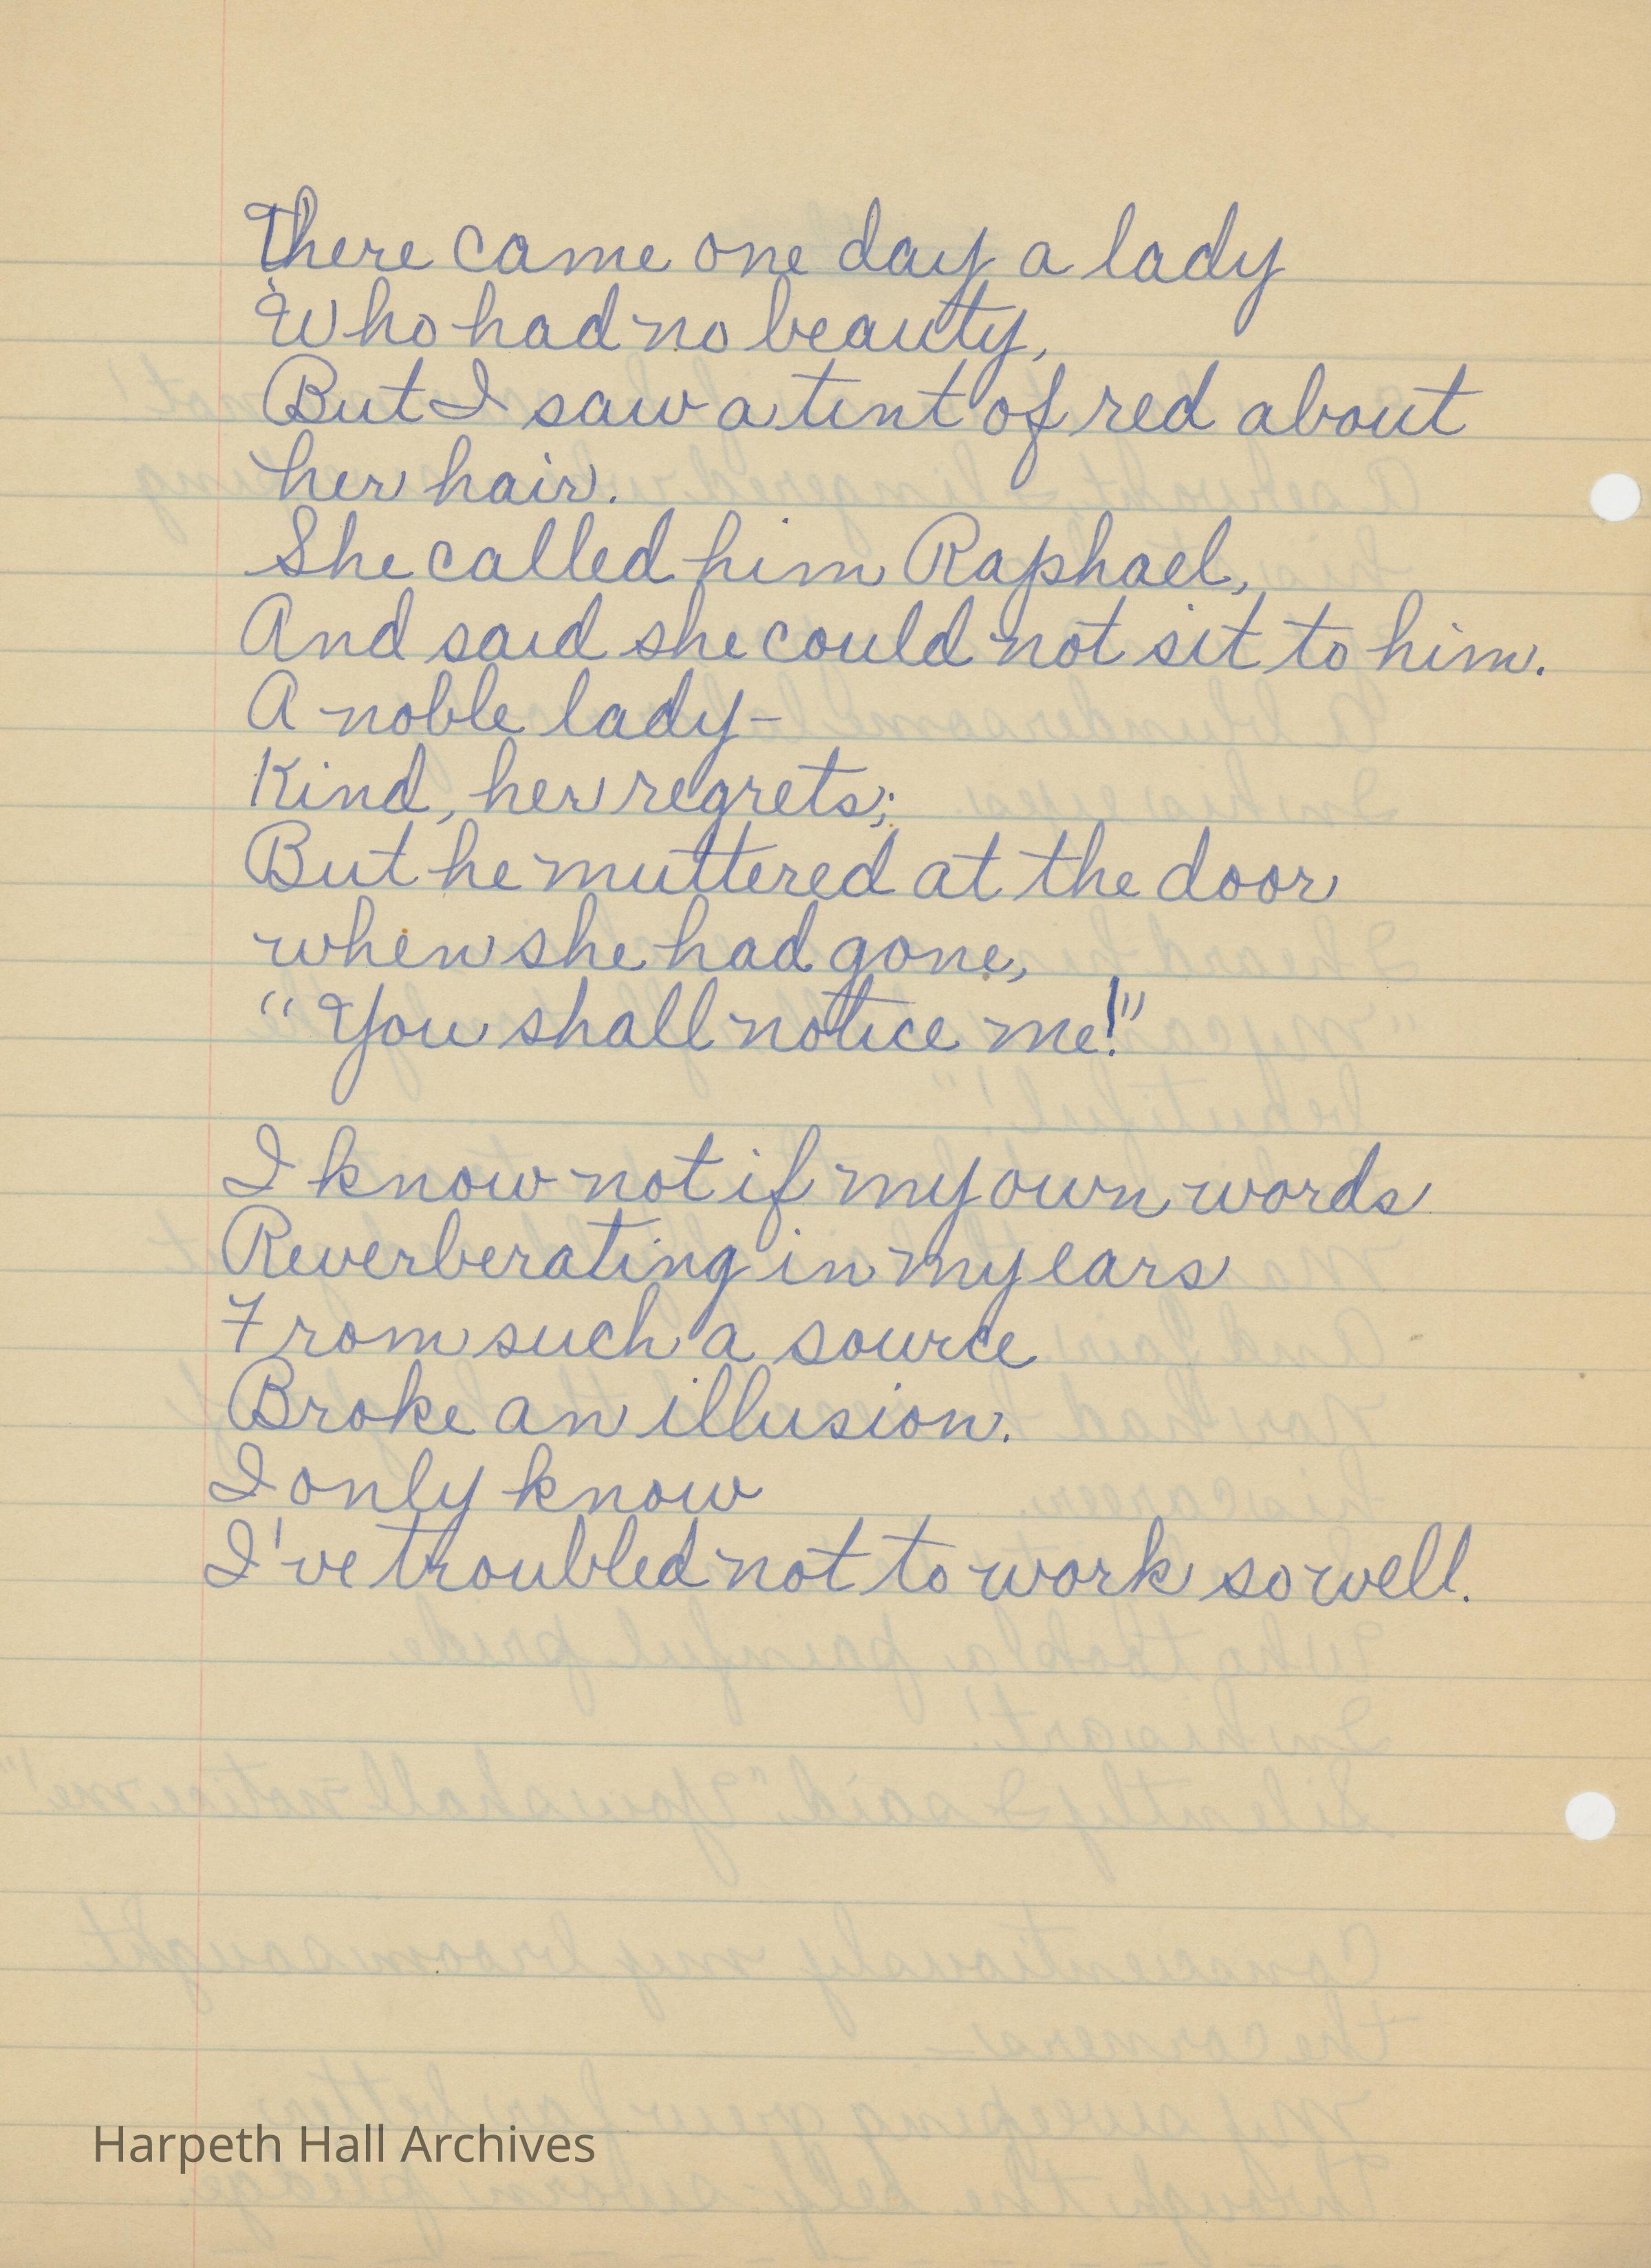 There came one day a lady
Who had no beauty,
But I saw a tint of red about
her hair.
She called him Raphael,
And said she could not sit to him.
A noble lady-
Kind, her regrets;
But he muttered at the door
when she had gone,
"You shall notice me!"
I know not if my own words
Reverberating in my ears
From such a source
Broke an illusion.
I only know
I've troubled not to work so well.
Harpeth Hall Archives